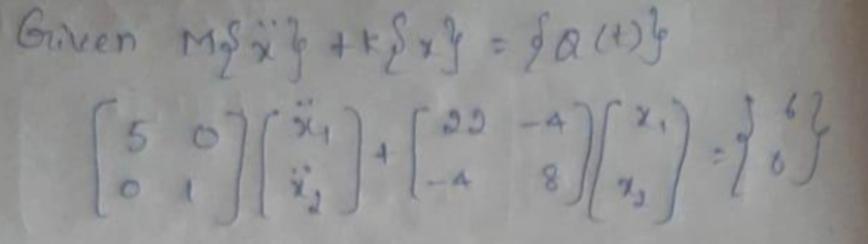 Given M{ẍ} + K{x} = {Q(t)}
[5 0; 0 1] [ẍ₁; ẍ₂] + [22 -4; -4 8] [x₁; x₂] = {6; 0}